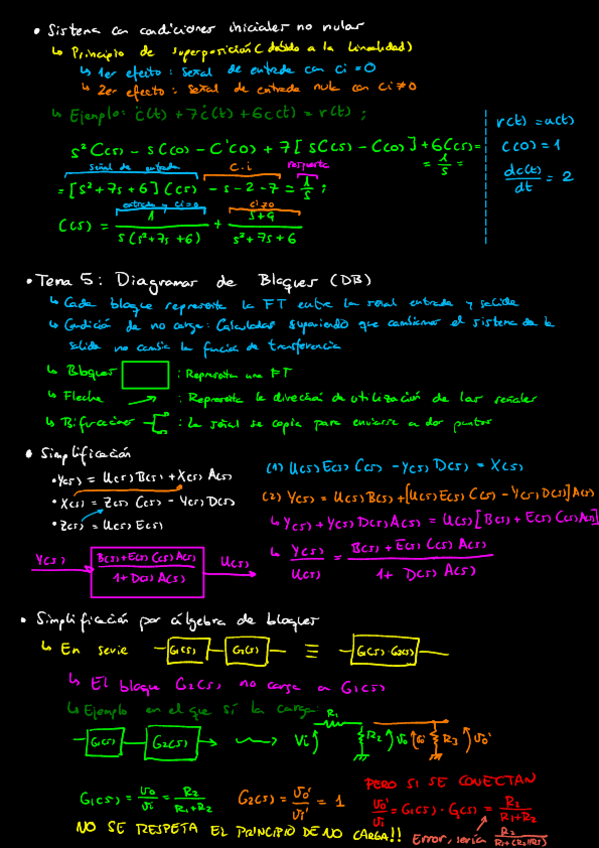 • Sistema con condiciones iniciales no nulas
↳ Principio de superposición (debido a la linealidad)
↳ 1er efecto: señal de entrada con ci = 0
↳ 2er efecto: señal de entrada nula con ci ≠ 0
↳ Ejemplo: c̈(t) + 7ċ(t) + 6c(t) = r(t) ;
r(t) = u(t)
c(0) = 1
dc(t)/dt = 2
s² C(s) - s C(0) - C'(0) + 7[ s C(s) - C(0) ] + 6 C(s) =
= 1/s =
señal de entrada
c.i
respuesta
= [s² + 7s + 6] C(s) - s - 2 - 7 = 1/s ;
entrada y ci=0
ci≠0
C(s) = 1/(s(s² + 7s + 6)) + (s+9)/(s² + 7s + 6)
• Tema 5: Diagramas de Bloques (DB)
↳ Cada bloque representa la FT entre la señal entrada y salida
↳ Condición de no carga: Calculadas suponiendo que cambiamos el sistema de la
salida no cambia la función de transferencia
↳ Bloques : Representa una FT
↳ Flecha : Representa la dirección de utilización de las señales
↳ Bifurcaciones : La señal se copia para enviarse a dos puntos
• Simplificación
• Y(s) = U(s) B(s) + X(s) A(s)
• X(s) = Z(s) C(s) - Y(s) D(s)
• Z(s) = U(s) E(s)
(1) U(s) E(s) C(s) - Y(s) D(s) = X(s)
(2) Y(s) = U(s) B(s) + [U(s) E(s) C(s) - Y(s) D(s)] A(s)
↳ Y(s) + Y(s) D(s) A(s) = U(s) [B(s) + E(s) C(s) A(s)]
↳ Y(s)/U(s) = (B(s) + E(s) C(s) A(s))/(1 + D(s) A(s))
Y(s)
(B(s) + E(s) C(s) A(s))/(1 + D(s) A(s))
U(s)
• Simplificación por álgebra de bloques
↳ En serie
G1(s)
G2(s)
≡
G1(s) · G2(s)
↳ El bloque G2(s) no carga a G1(s)
↳ Ejemplo en el que sí la carga
G1(s)
G2(s)
Vi
R1
R2
Vo
R3
Vo'
G1(s) = Vo/Vi = R2/(R1+R2)
G2(s) = Vo'/Vi' = 1
PERO SI SE CONECTAN
Vo'/Vi = G1(s) · G2(s) = R2/(R1+R2)
NO SE RESPETA EL PRINCIPIO DE NO CARGA!!
Error, sería